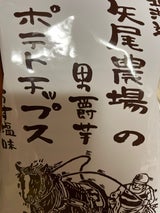 矢尾農場の
男爵芋
ポテトチップス
うす塩味